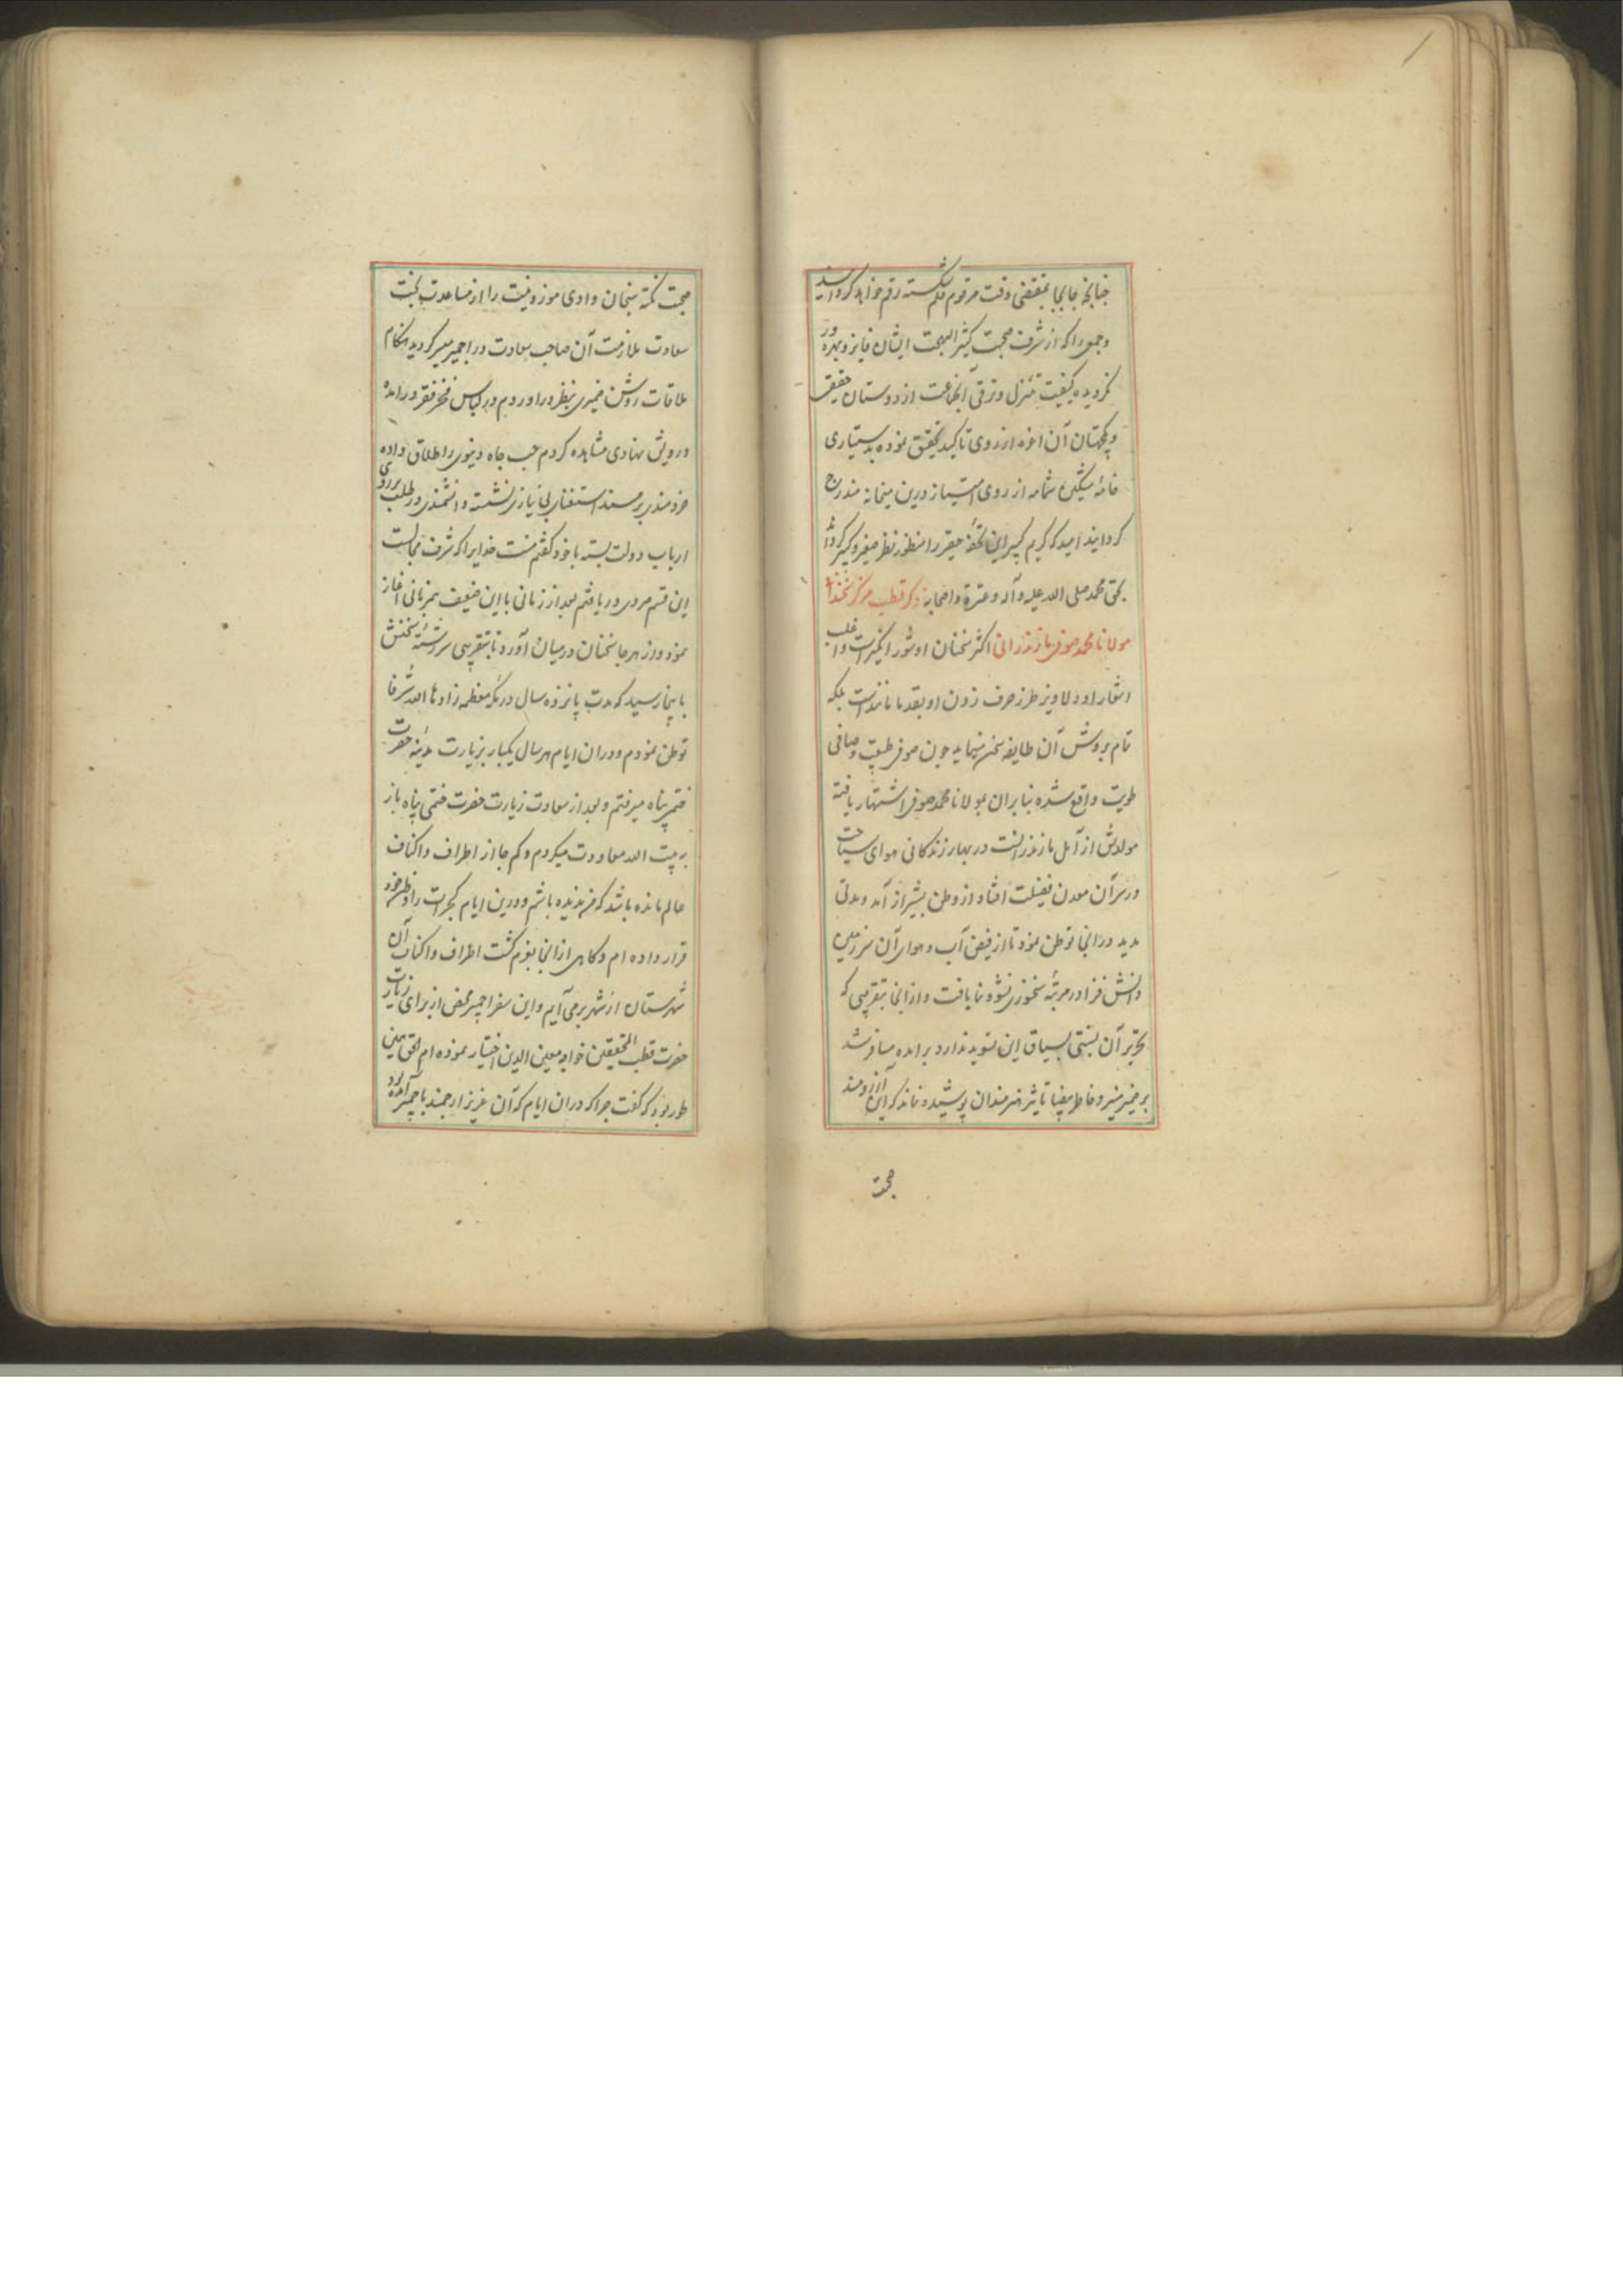 چنانچه جابجا بمقتضی وقت مرقوم قلم شکسته رقم خواهد گردانید
و جمعی را که از شرف صحبت کثیر البهجت ایشان فایز و بهره ور
نگردیده کیفیت تنزل و ترقی آنجماعت از دوستان حقیقی
و یکجهتان آن اعزه از روی تاکید تحقیق نموده بدستیاری
خامهٔ مشکین شمامه از روی امتیاز درین میخانه مندرج
گرداند امید که کریم کبیر این تحفهٔ حقیر را منظور نظر صغیر و کبیر گرداند
بحق محمد صلی الله علیه و آله و عترة و اصحابه ذکر قطب مرکز سخندانی
مولانا محمد صوفی مازندرانی اکثر سخنان او شور انگیز است و اغلب
اشعار او دلاویز طرز حرف زدن او بقدما مانند است بلکه
تمام بروش آن طایفه سخن مینماید چون صوفی طبیعت و صافی
طویت واقع شده بنابران بمولانا محمد صوفی اشتهار یافته
مولدش از آمل مازندرانست در بهار زندگانی هوای سیاحت
در سر آن معدن فضیلت افتاد از وطن بشیراز آمد و مدتی
مدید در آنجا توطن نمود تا از فیض آب و هوای آن سرزمین
دانش فزا در مرتبهٔ سخنوری نشو و نما یافت و از آنجا بتقریبی که
تحریر آن نسبتی بسیاق این تسوید ندارد برآمده مسافر شد
بر ضمیر منیر و خاطر تأثیر هنرمندان پوشیده نماند که این آرزومند
صحبت
صحبت نکته سنجان وادی موزونیت را از مساعدت بخت
سعادت ملازمت آن صاحب سعادت در اجمیر میسر گردید هنگام
ملاقات روشن ضمیری بنظر در آوردم در لباس فخر فقر درآمده
درویش نهادی مشاهده کردم حب جاه دنیوی را طلاق داده
خردمندی بر مسند استغنای بی نیازی نشسته دانشمندی در طلب بروی
ارباب دولت بسته با خود گفتم منت خدایرا که شرف مجالست
این قسم مردی دریافتم بعد از زمانی با این ضعیف همزبانی آغاز
نمود و از هرجا سخنان درمیان آورد تا بتقریبی سررشتهٔ سخنش
باینجا رسید که مدت پانزده سال در مکه معظمه زادها الله شرفا
توطن نمودم و دران ایام هر سال یکبار بزیارت مدینه حضرت
ختمی پناه میرفتم و بعد از سعادت زیارت حضرت ختمی پناه باز
به بیت الله معاودت میکردم و کم جا از اطراف و اکناف
عالم مانده باشد که من ندیده باشم و درین ایام گجرات را وطن خود
قرار داده ام و گاهی از آنجا بعزم گشت اطراف و اکناف آن
شهرستان از شهر برمی آیم و این سفر اجمیر محض از برای زیارت
حضرت قطب المحققین خواجه معین الدین اختیار نموده ام الحق همین
طور بود که گفت چرا که دران ایام که آن عزیز ارجمند باجمیر آمده بود